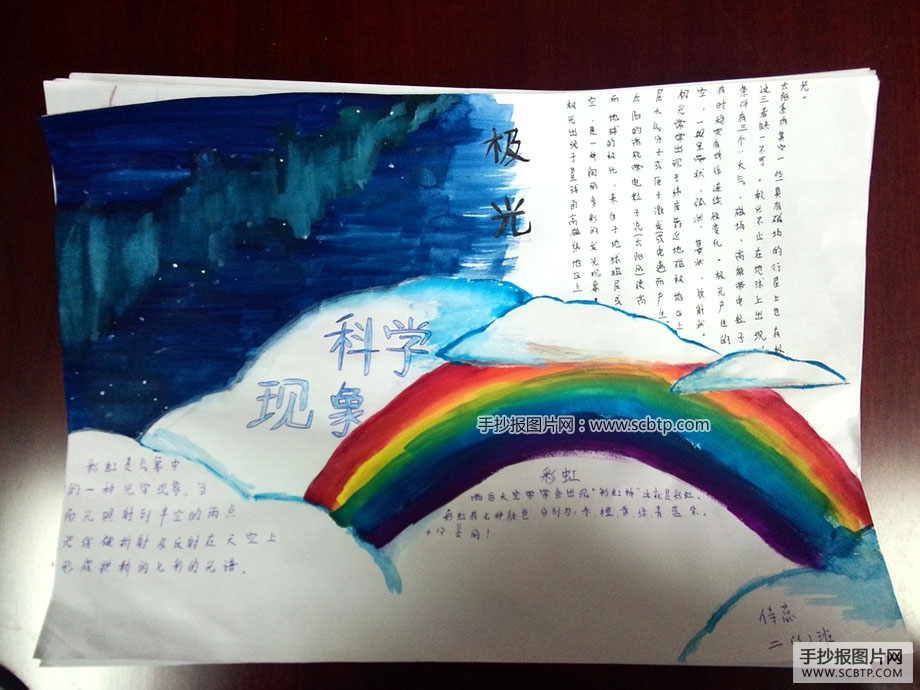 极光
极光出现于星球的高磁纬地区上
空,是一种绚丽多彩的发光现象。
而地球的极光,来自于地球磁层或
太阳的高能带电粒子流(太阳风)使高
层大气分子或原子激发(或电离)而产生。
极光常常出现于纬度靠近地磁极地区上
空,一般呈带状、弧状、幕状、放射状,
有时稳定有时作连续性变化。极光产生的
条件有三个:大气、磁场、高能带电粒子
这三者缺一不可。极光不止在地球上出现,
太阳系内其中一些具有磁场的行星上也有极
光。
科学
现象
手抄报图片网:www.scbtp.com
彩虹是气象中
的一种光学现象。当
阳光照射到半空的雨点
光线被折射及反射在天空上
形成拱桥的七彩的光谱。
彩虹
雨后天空常常会出现“彩虹桥”这就是彩虹。
彩虹有七种颜色,分别为:赤、橙、黄、绿、青、蓝、紫。
十分美丽!
二(1)班
手抄报图片网
WWW.SCBTP.COM